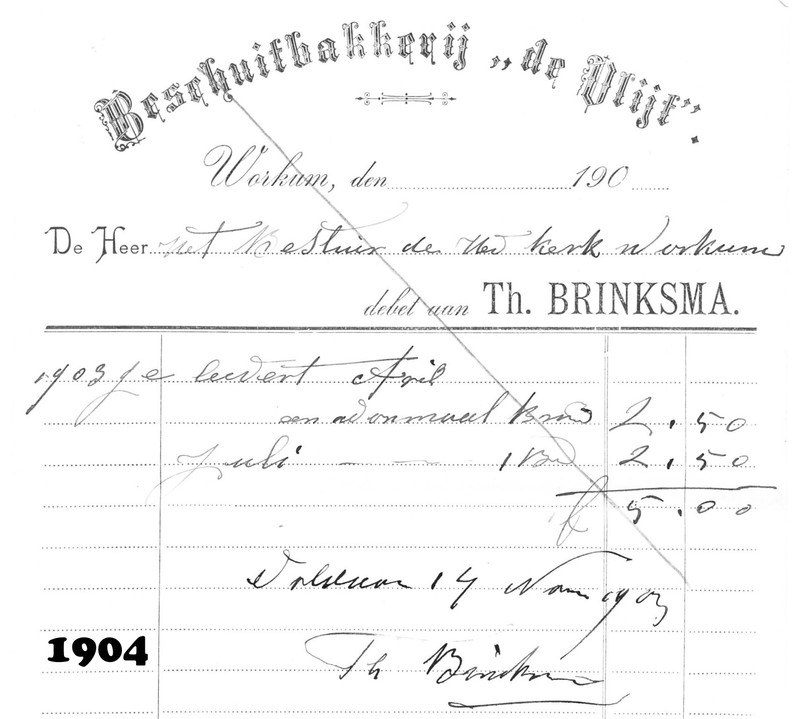 Beschuitbakkerij „de Vlijt”.
Workum, den 190
De Heer het Bestuur de Ned kerk Workum
debet aan Th. BRINKSMA.
1903 Ge levert April
een avonmaal Brood 2.50
Juli — — 1 Br 2.50
f 5.00
Voldaan 14 Nov 1903
Th Brinksma
1904